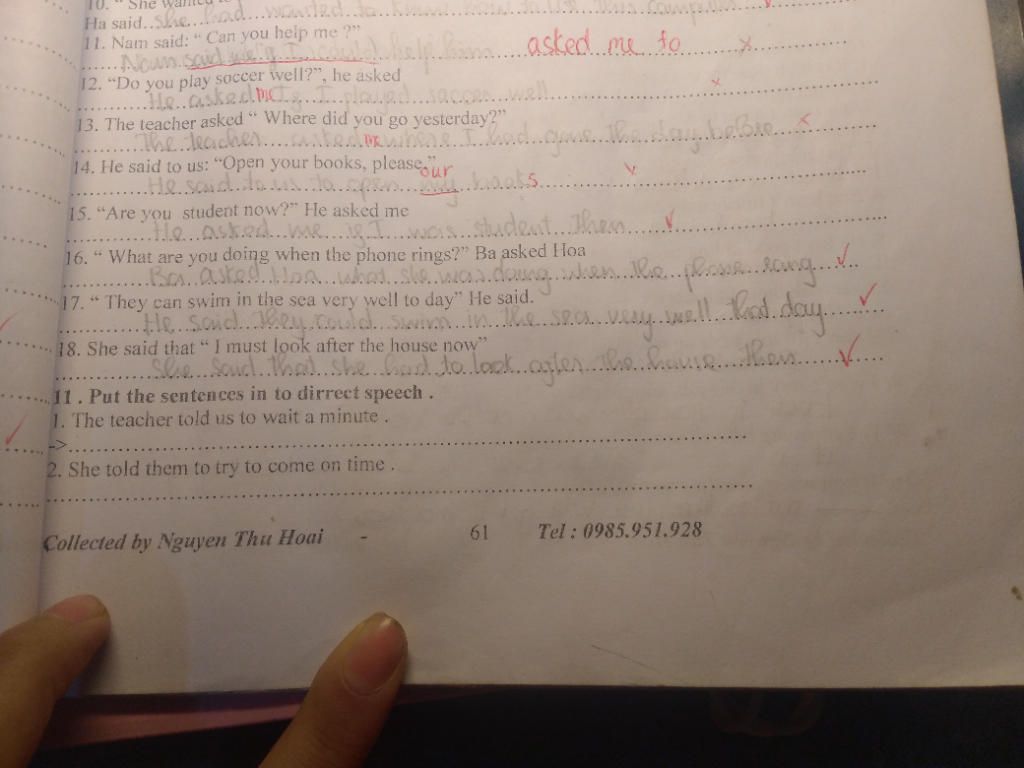 10. “ She wanted to
Ha said..She had wanted to know how to use this computer
11. Nam said: “ Can you help me ?”
Nam said me if I could help him asked me to x
12. “Do you play soccer well?”, he asked
He asked me If I played soccer well x
13. The teacher asked “ Where did you go yesterday?”
The teacher asked me where I had gone the day before x
14. He said to us: “Open your books, please.”
He said to us to open my our books
15. “Are you student now?” He asked me
He asked me if I was student then ✓
16. “ What are you doing when the phone rings?” Ba asked Hoa
Ba asked Hoa what she was doing when the phone rang ✓
17. “ They can swim in the sea very well to day” He said.
He said they could swim in the sea very well that day ✓
18. She said that “ I must look after the house now”
She said that she had to look after the house then ✓
11 . Put the sentences in to dirrect speech .
1. The teacher told us to wait a minute .
->
2. She told them to try to come on time .
Collected by Nguyen Thu Hoai - 61 Tel : 0985.951.928